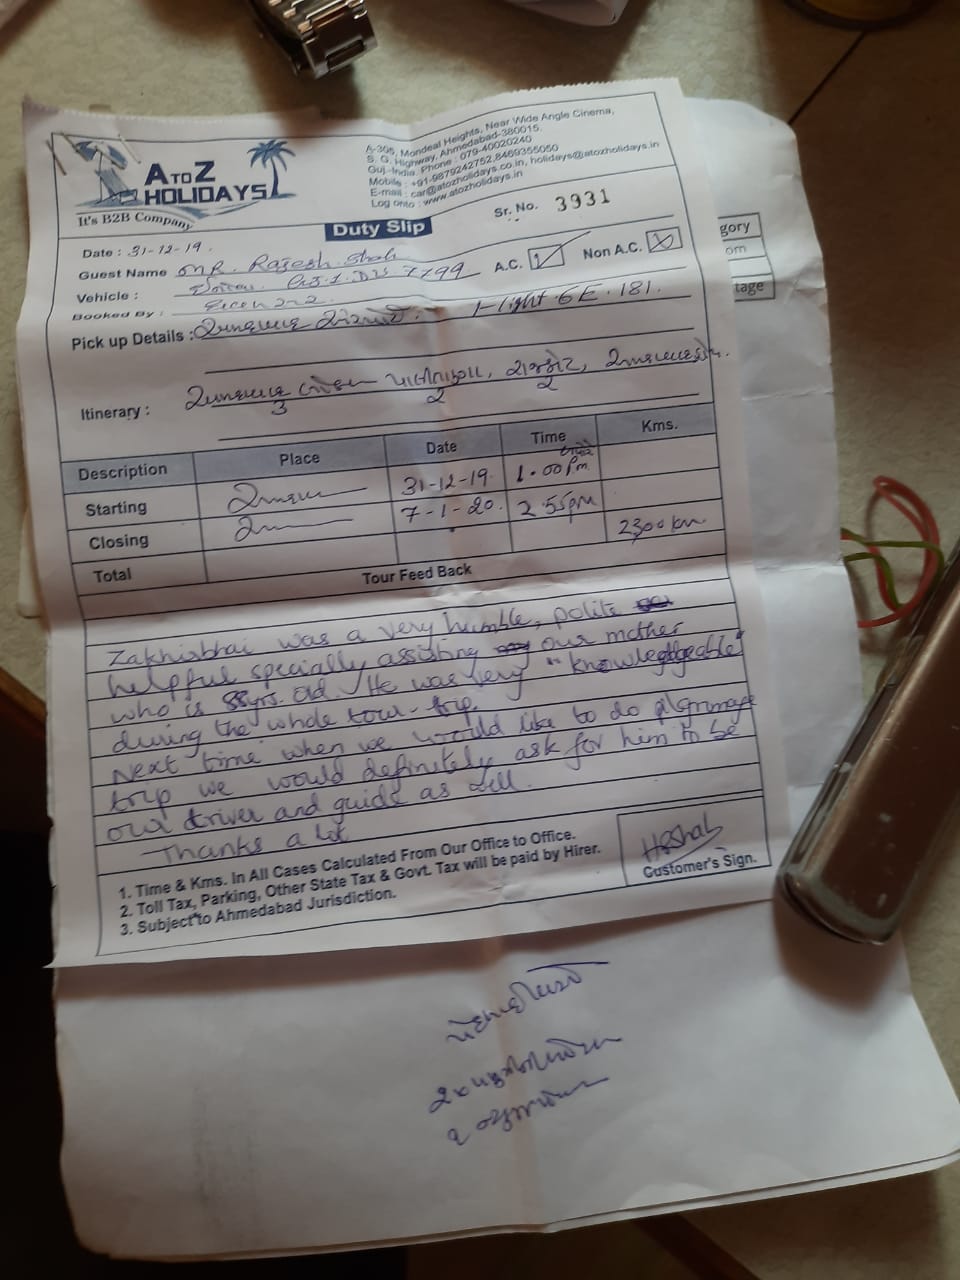 A TO Z
HOLIDAYS
It's B2B Company
A-305, Mondeal Heights, Near Wide Angle Cinema,
S. G. Highway, Ahmedabad-380015.
Guj.-India. Phone : 079-40020240
Mobile : +91-9879242752,8469355050
E-mail : car@atozholidays.co.in, holidays@atozholidays.in
Log onto : www.atozholidays.in
Duty Slip
Sr. No. 3931
Date : 31-12-19.
Guest Name MR. Rajesh Shah
A.C. Non A.C.
Vehicle : 7799
Booked By :
Pick up Details : Flight 6E 181.
Itinerary :
3 2 2
Description Place Date Time Kms.
Starting 31-12-19 1.00 Pm
Closing 7-1-20. 2.55pm
Total 2300 km
Tour Feed Back
Zakhirbhai was a very humble, polite
helpful specially assisting our mother
who is 88yrs. old. He was very "knowledgeable"
during the whole tour-trip.
Next time when we would like to do pilgrimage
trip we would definitely ask for him to be
our driver and guide as well.
Thanks a lot
1. Time & Kms. In All Cases Calculated From Our Office to Office.
2. Toll Tax, Parking, Other State Tax & Govt. Tax will be paid by Hirer.
3. Subject to Ahmedabad Jurisdiction.
Customer's Sign.
gory
om
tage